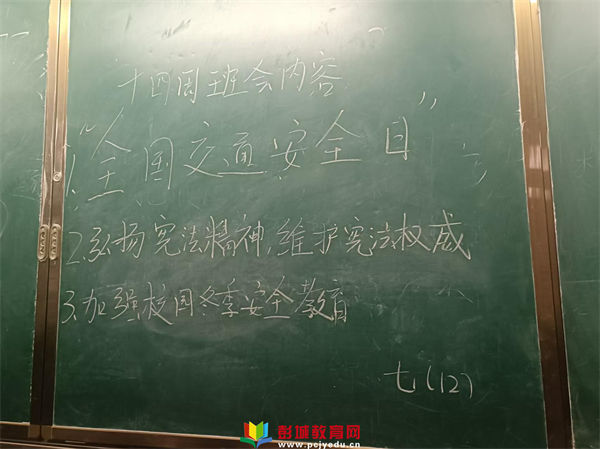 十四周班会内容
1.“全国交通安全日”
2.弘扬宪法精神,维护宪法权威
3.加强校园冬季安全教育
七(12)
彭城教育网
www.pcjyedu.cn